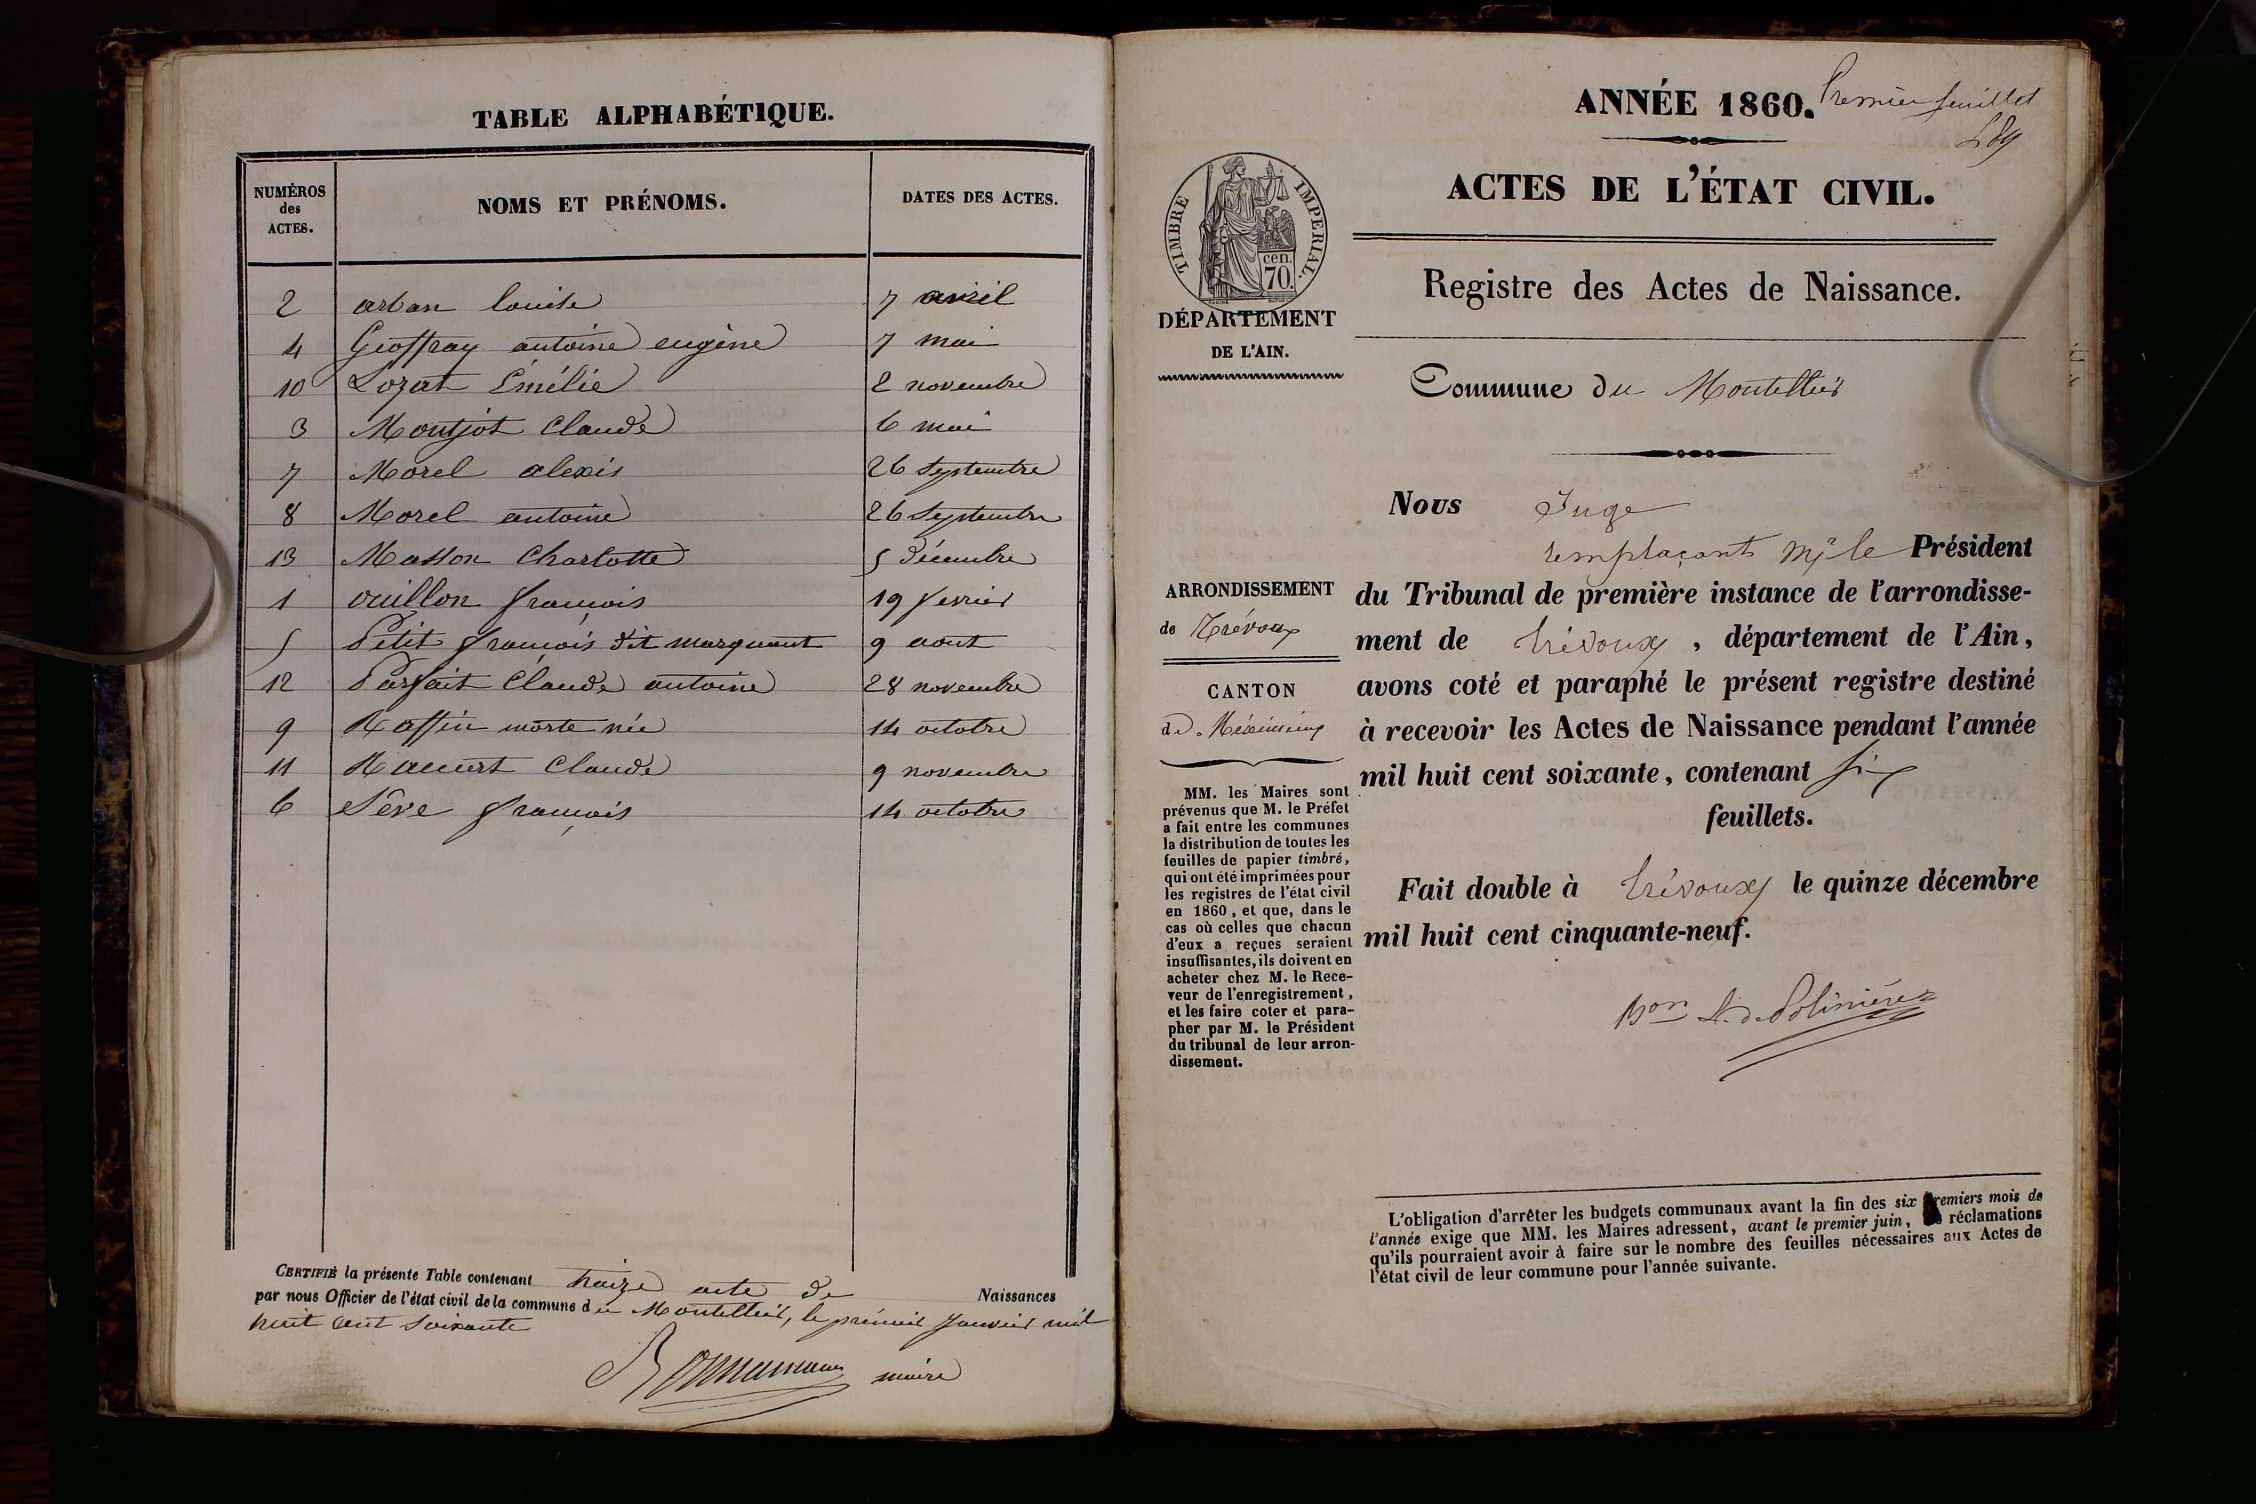 TABLE ALPHABÉTIQUE.
NUMÉROS des ACTES. NOMS ET PRÉNOMS. DATES DES ACTES.
2 arban louise 7 avril
4 Geoffray antoine eugène 7 mai
10 Lozat Émélie 2 novembre
3 Montjot Claude 6 mai
7 Morel alexis 26 Septembre
8 Morel antoine 26 Septembre
13 Masson Charlotte 5 Décembre
1 ouillon françois 19 fevrier
5 Petit françois dit marquant 9 aout
12 Parfait Claude antoine 28 novembre
9 Raffin morte née 14 octobre
11 Claude 9 novembre
6 Sève françois 14 octobre
CERTIFIÉ la présente Table contenant treize acte de Naissances
par nous Officier de l'état civil de la commune du Montellier, le prémier Janvier mil
huit cent soixante
maire
ANNÉE 1860. Premier feuillet
ACTES DE L'ÉTAT CIVIL.
TIMBRE IMPERIAL.
cen.
70.
Registre des Actes de Naissance.
DÉPARTEMENT
DE L'AIN.
Commune du Montellier
Nous Juge
remplaçant Mr le Président
du Tribunal de première instance de l'arrondisse-
ment de Trévoux, département de l'Ain,
avons coté et paraphé le présent registre destiné
à recevoir les Actes de Naissance pendant l'année
mil huit cent soixante, contenant six
feuillets.
Fait double à Trévoux le quinze décembre
mil huit cent cinquante-neuf.
Bon L. de Polinière
ARRONDISSEMENT
de Trévoux
CANTON
de Méximieux
MM. les Maires sont
prévenus que M. le Préfet
a fait entre les communes
la distribution de toutes les
feuilles de papier timbré,
qui ont été imprimées pour
les registres de l'état civil
en 1860, et que, dans le
cas où celles que chacun
d'eux a reçues seraient
insuffisantes, ils doivent en
acheter chez M. le Rece-
veur de l'enregistrement,
et les faire coter et para-
pher par M. le Président
du tribunal de leur arron-
dissement.
L'obligation d'arrêter les budgets communaux avant la fin des six premiers mois de
l'année exige que MM. les Maires adressent, avant le premier juin, réclamations
qu'ils pourraient avoir à faire sur le nombre des feuilles nécessaires aux Actes de
l'état civil de leur commune pour l'année suivante.